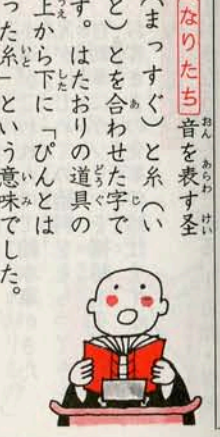 なりたち 音を表す圣
(まっすぐ)と糸(い
と)とを合わせた字で
す。はたおりの道具の
上から下に「ぴんとは
った糸」という意味でした。